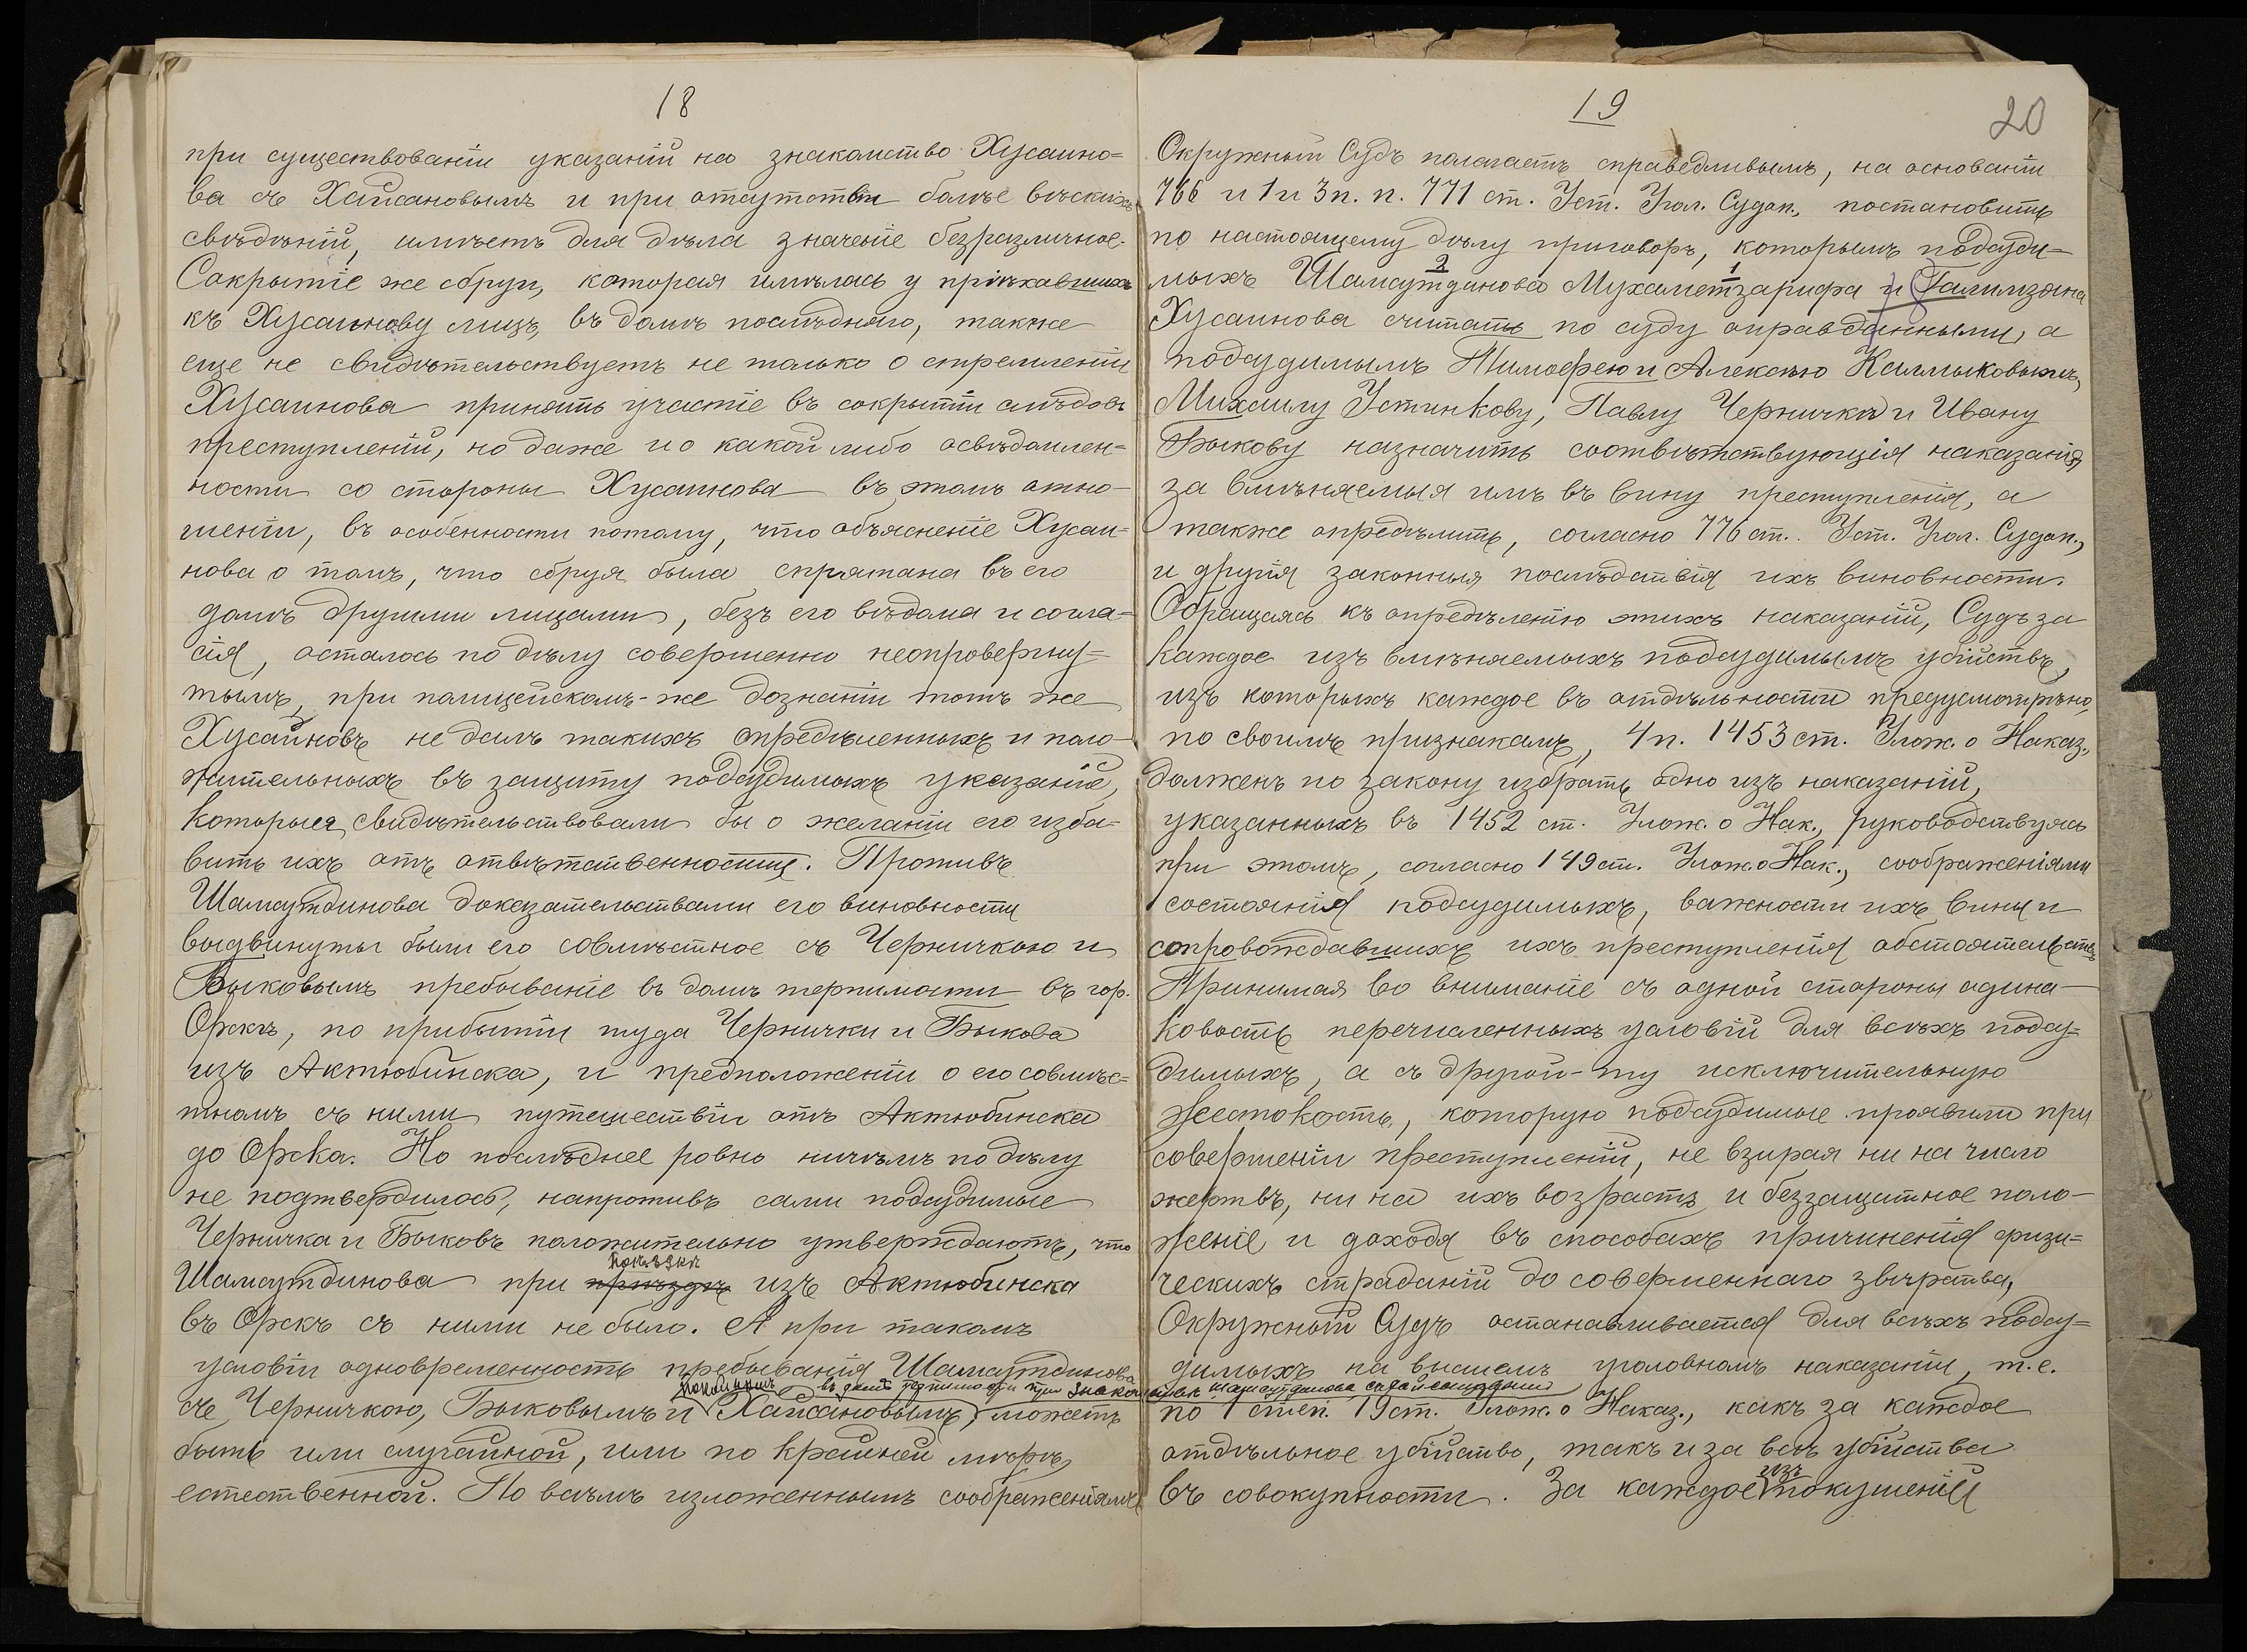 18
при существованіи указаній на знакомство Хусаино=
ва съ Хайсановымъ и при отсутствіи болѣе вѣскихъ
свѣдѣній, имѣетъ для дѣла значеніе безразличное.
Сокрытіе же сбруи, которая имѣлась у пріѣхавшихъ
къ Хусаинову лицъ, въ домѣ послѣдняго, также
еще не свидѣтельствуетъ не только о стремленіи
Хусаинова принять участіе въ сокрытіи слѣдовъ
преступленій, но даже и о какой либо освѣдомлен=
ности со стороны Хусаинова въ этомъ отно-
шеніи, въ особенности потому, что объясненіе Хусаи=
нова о томъ, что сбруя была спрятана въ его
домѣ другими лицами, безъ его вѣдома и согла=
сія, осталось по дѣлу совершенно неопровергну=
тымъ, при полицейскомъ-же дознаніи тотъ же
Хусаиновъ не далъ такихъ опредѣленныхъ и поло-
жительныхъ въ защиту подсудимыхъ указаній,
которыя свидѣтельствовали бы о желаніи его изба=
вить ихъ отъ отвѣтственности. Противъ
Шамсутдинова доказательствами его виновности
выдвинуты были его совмѣстное съ Черничкою и
Быковымъ пребываніе въ домѣ терпимости въ гор.
Орскѣ, по прибытіи туда Чернички и Быкова
изъ Актюбинска, и предположеніи о его совмѣс=
тномъ съ ними путешествіи отъ Актюбинска
до Орска. Но послѣднее ровно ничѣмъ по дѣлу
не подтвердилось, напротивъ сами подсудимые
Черничка и Быковъ положительно утверждаютъ, что
поѣздкѣ
Шамсутдинова при пріѣздѣ изъ Актюбинска
въ Орскъ съ ними не было. А при такомъ
условіи одновременность пребыванія Шамсутдинова
въ домѣ терпимости при знакомствѣ Шамсутдинова съ Хайсановымъ
съ Черничкою, Быковымъ и Хайсановымъ, можетъ
быть или случайной, или по крайней мѣрѣ
естественной. По всѣмъ изложеннымъ соображеніямъ
19
20
Окружный Судъ полагаетъ справедливымъ, на основаніи
766 и 1 и 3 п. п. 771 ст. Уст. Угол. Судоп., постановить
по настоящему дѣлу приговоръ, которымъ подсуди-
2 1
мыхъ Шамсутдинова Мухаметзарифа и Галимзяна
Хусаинова считать по суду оправданными, а
подсудимымъ Тимофею и Алексѣю Калмыковымъ,
Михаилу Устинкову, Павлу Черничкѣ и Ивану
Быкову назначить соотвѣтствующія наказанія
за вмѣняемыя имъ въ вину преступленія, а
также опредѣлить, согласно 776 ст. Уст. Угол. Судоп.,
и другія законныя послѣдствія ихъ виновности.
Обращаясь къ опредѣленію этихъ наказаній, Судъ за
каждое изъ вмѣняемыхъ подсудимымъ убійствъ,
изъ которыхъ каждое въ отдѣльности предусмотрѣно,
по своимъ признакамъ, 4 п. 1453 ст. Улож. о Наказ.,
долженъ по закону избрать одно изъ наказаній,
указанныхъ въ 1452 ст. Улож. о Нак., руководствуясь
при этомъ, согласно 149 ст. Улож. о Нак., соображеніями
состоянія подсудимыхъ, важности ихъ вины и
сопровождавшихъ ихъ преступленія обстоятельствъ.
Принимая во вниманіе съ одной стороны одина-
ковость перечисленныхъ условій для всѣхъ подсу=
димыхъ, а съ другой-ту исключительную
жестокость, которую подсудимые проявили при
совершеніи преступленій, не взирая ни на число
жертвъ, ни на ихъ возрастъ и беззащитное поло-
женіе и доходя въ способахъ причиненія физи=
ческихъ страданій до совершеннаго звѣрства,
Окружный Судъ останавливается для всѣхъ подсу=
димыхъ на высшемъ уголовномъ наказаніи, т.е.
по 1 степ. 19 ст. Улож. о Наказ., какъ за каждое
отдѣльное убійство, такъ и за всѣ убійства
изъ
въ совокупности. За каждое покушеній